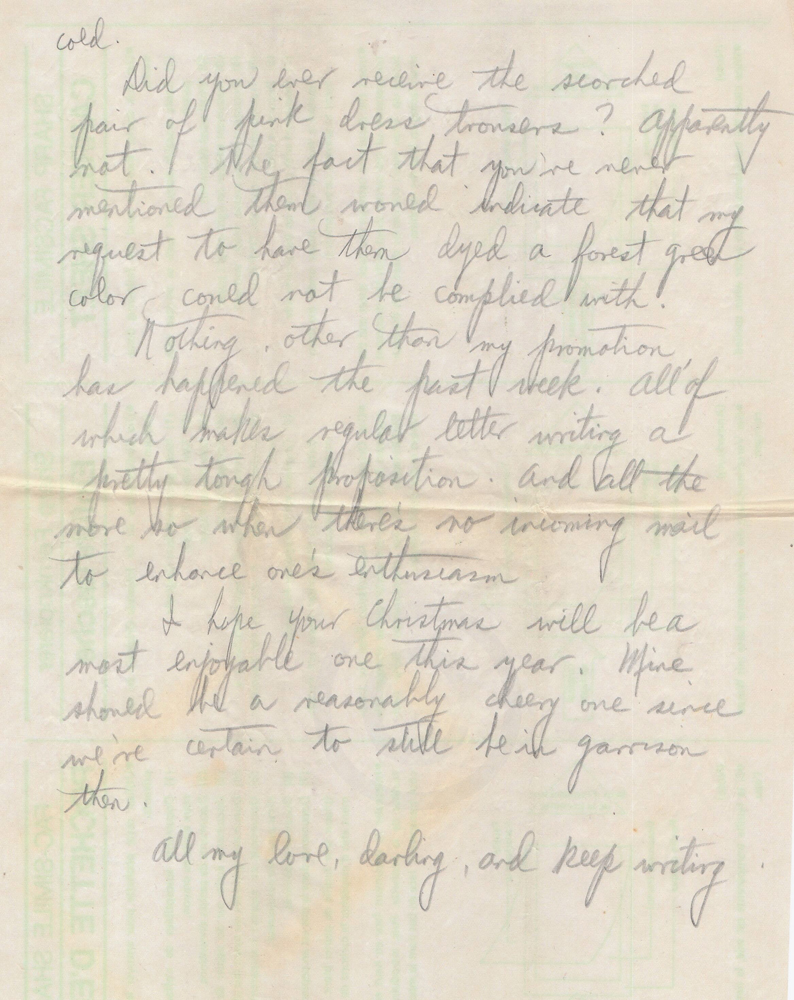 cold.
Did you ever receive the scorched
pair of pink dress trousers? Apparently
not. The fact that you've never
mentioned them would indicate that my
request to have them dyed a forest green
color could not be complied with.
Nothing, other than my promotion,
has happened the past week. All of
which makes regular letter writing a
pretty tough proposition. And all the
more so when there's no incoming mail
to enhance one's enthusiasm
I hope your Christmas will be a
most enjoyable one this year. Mine
should be a reasonably cheery one since
we're certain to still be in garrison
then.
All my love, darling, and keep writing